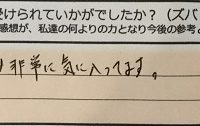 受けられていかがでしたか？（ズバ
感想が、私達の何よりの力となり今後の参考と
非常に気に入ってます。